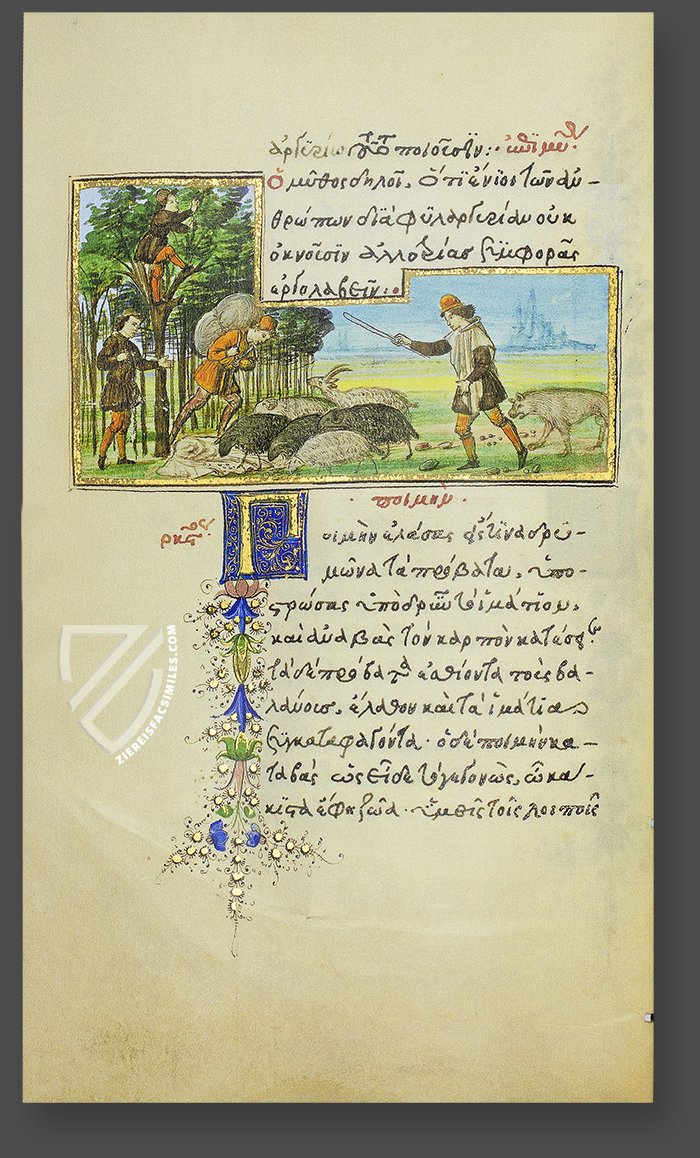 Ὁ μῦθος δηλοῖ, ὅτι ἔνιοι τῶν ἀν-
θρώπων διὰ φιλαργυρίαν οὐκ
ὀκνοῦσιν ἀλλοτρίας συμφορὰς
ποιμήν.
Ποιμὴν ἐλάσας εἴς τινα δρυ-
μῶνα τὰ πρόβατα, ὑπο-
στρώσας ὑπὸ δρῦν τὸ ἱμάτιον,
καὶ ἀναβὰς τὸν καρπὸν κατέσειε.
τὰ δὲ πρόβατα ἐσθίοντα τὰς βα-
λάνους, ἔλαθον καὶ τὰ ἱμάτια
συγκαταφαγόντα. ὁ δὲ ποιμὴν κα-
ταβὰς ὡς εἶδε τὸ γεγονὼς, ὦ κά-
κιστα ἔφη ζῶα. ὑμεῖς τοῖς λοιποῖς
ZIEREISFACSIMILES.COM